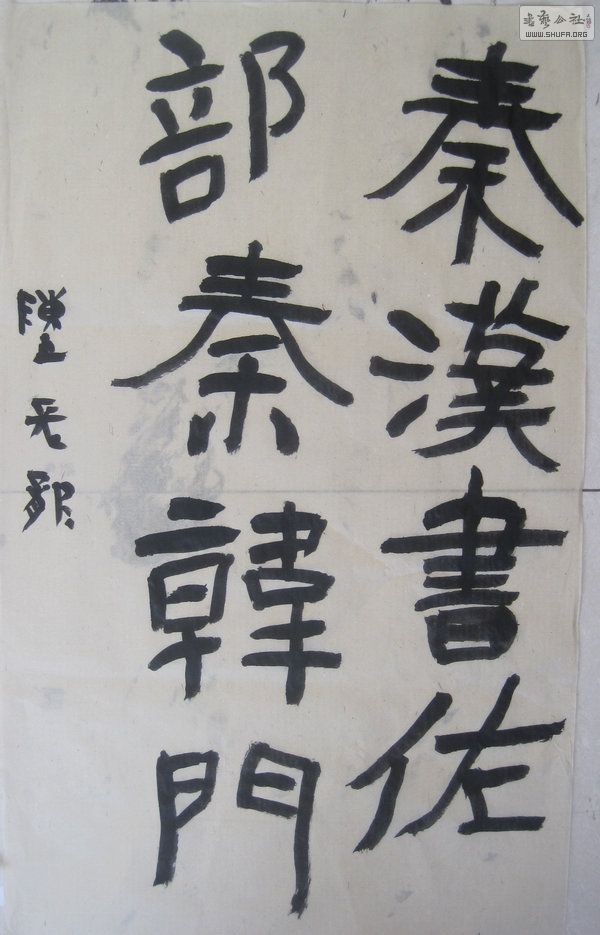 秦漢書佐
部秦韓門
書藝公社
WWW.SHUFA.ORG